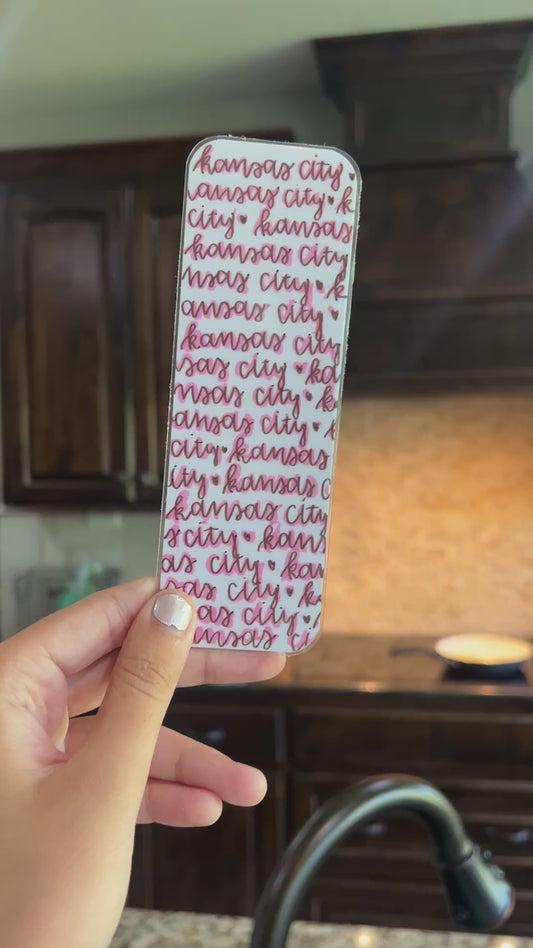 kansas city ♥
ansas city ♥ k
city ♥ kansas
kansas city
nsas city ♥ k
ansas city ♥
kansas city
sas city ♥ ka
nsas city ♥ k
ansas city ♥ k
city ♥ kansas
ity ♥ kansas c
kansas city
s city ♥ kans
as city ♥ kan
sas city ♥ k
as city ♥ k
ansas ci